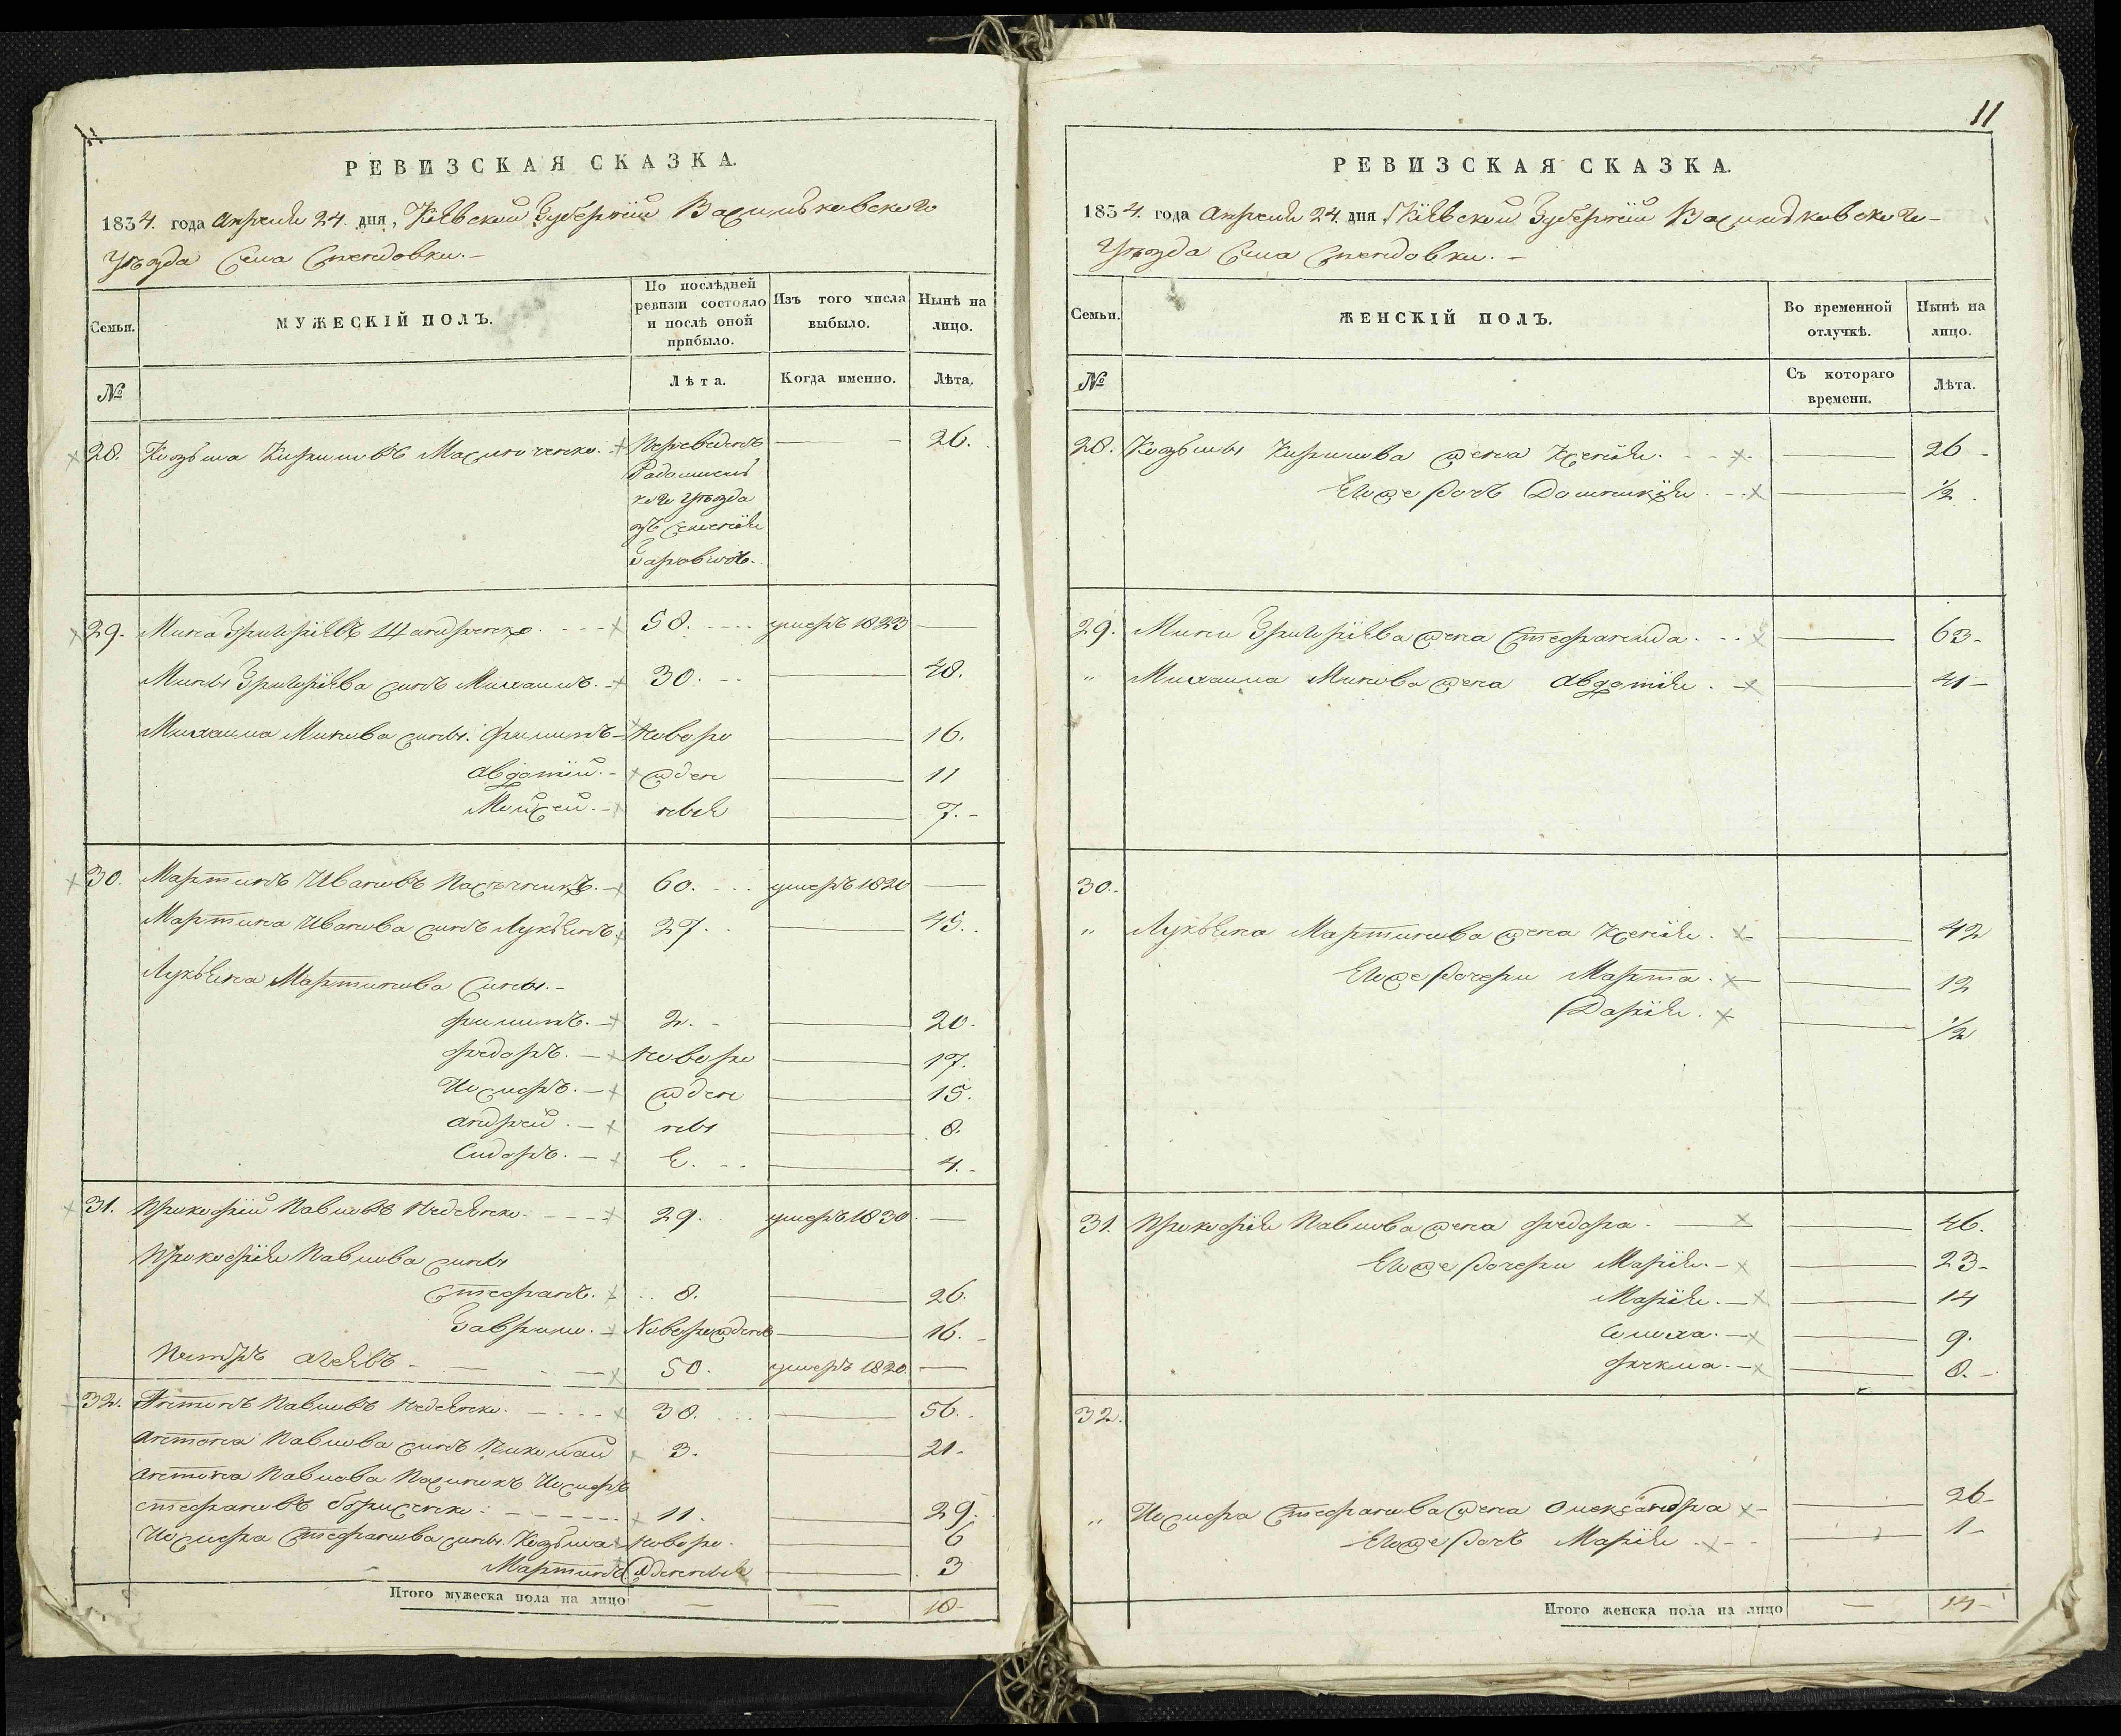 РЕВИЗСКАЯ СКАЗКА.
1834. года Апреля 24. дня, Кіевской Губерніи Васильковскаго
Уѣзда Села Спендовки.
Семьи.
МУЖЕСКІЙ ПОЛЪ.
По послѣдней ревизіи состояло и послѣ оной прибыло.
Изъ того числа выбыло.
Нынѣ на лицо.
№
Лѣта.
Когда именно.
Лѣта.
28. Козьма Кириловъ 26.
Уѣзда
29. Мина Григоріевъ 58. умеръ 1823
Мины Григоріева синъ Михаилъ. 30. 48.
Михаила Минова сины. Филипъ Новоро 16.
Авдотій. жден 11
Мойсей. ныя 7.
30. Мартинъ Ивановъ Пасѣчникъ. 60. умеръ 1820
Мартина Иванова синъ Лукьянъ 27. 45.
Лукьяна Мартинова Сины.
Филипъ. 2. 20.
Федоръ. Новоро 17.
Иосифъ. жден 15.
Андрей. ны 8.
Сидоръ. е. 4.
31. Прокофій Павловъ 29. умеръ 1830
Прокофія Павлова сины
Стефанъ. 8. 26.
Гаврило. Новорожденъ 16.
Петръ 50. умеръ 1820.
32. Антонъ Павловъ 38. 56.
Антона Павлова синъ Николай 3. 21.
Антона Павлова Иосифъ
Стефановъ Борисенко. 11. 29.
Иосифа Стефанова сины. Козьма Новоро 6
Мартинъ жденныя 3
Итого мужеска пола на лицо 18
11
РЕВИЗСКАЯ СКАЗКА.
1834. года Апреля 24. дня, Кіевской Губерніи Васильковскаго
Уѣзда Села Спендовки.
Семьи.
ЖЕНСКІЙ ПОЛЪ.
Во временной отлучкѣ.
Нынѣ на лицо.
№
Съ котораго времени.
Лѣта.
28. Козьмы Кирилова жена Ксенія. 26
Егоже дочь Домникія. 1/2.
29. Мини Григоріева жена Стефанида. 63
" Михаила Минова жена Авдотія. 41
30.
" Лукьяна Мартинова жена Ксенія. 42
Егоже дочери Марта. 12
Дарія. 1/2
31. Прокофія Павлова жена Федора. 46.
Егоже дочери Марія. 23
Марія. 14
9.
Фекла. 8.
32.
" Иосифа Стефанова жена Олександра 26
Егоже дочь Марія 1
Итого женска пола на лицо 14